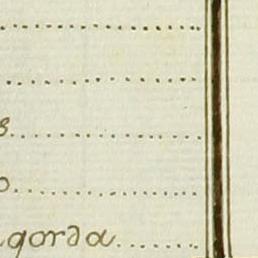 s..............
o..............
agorda.......